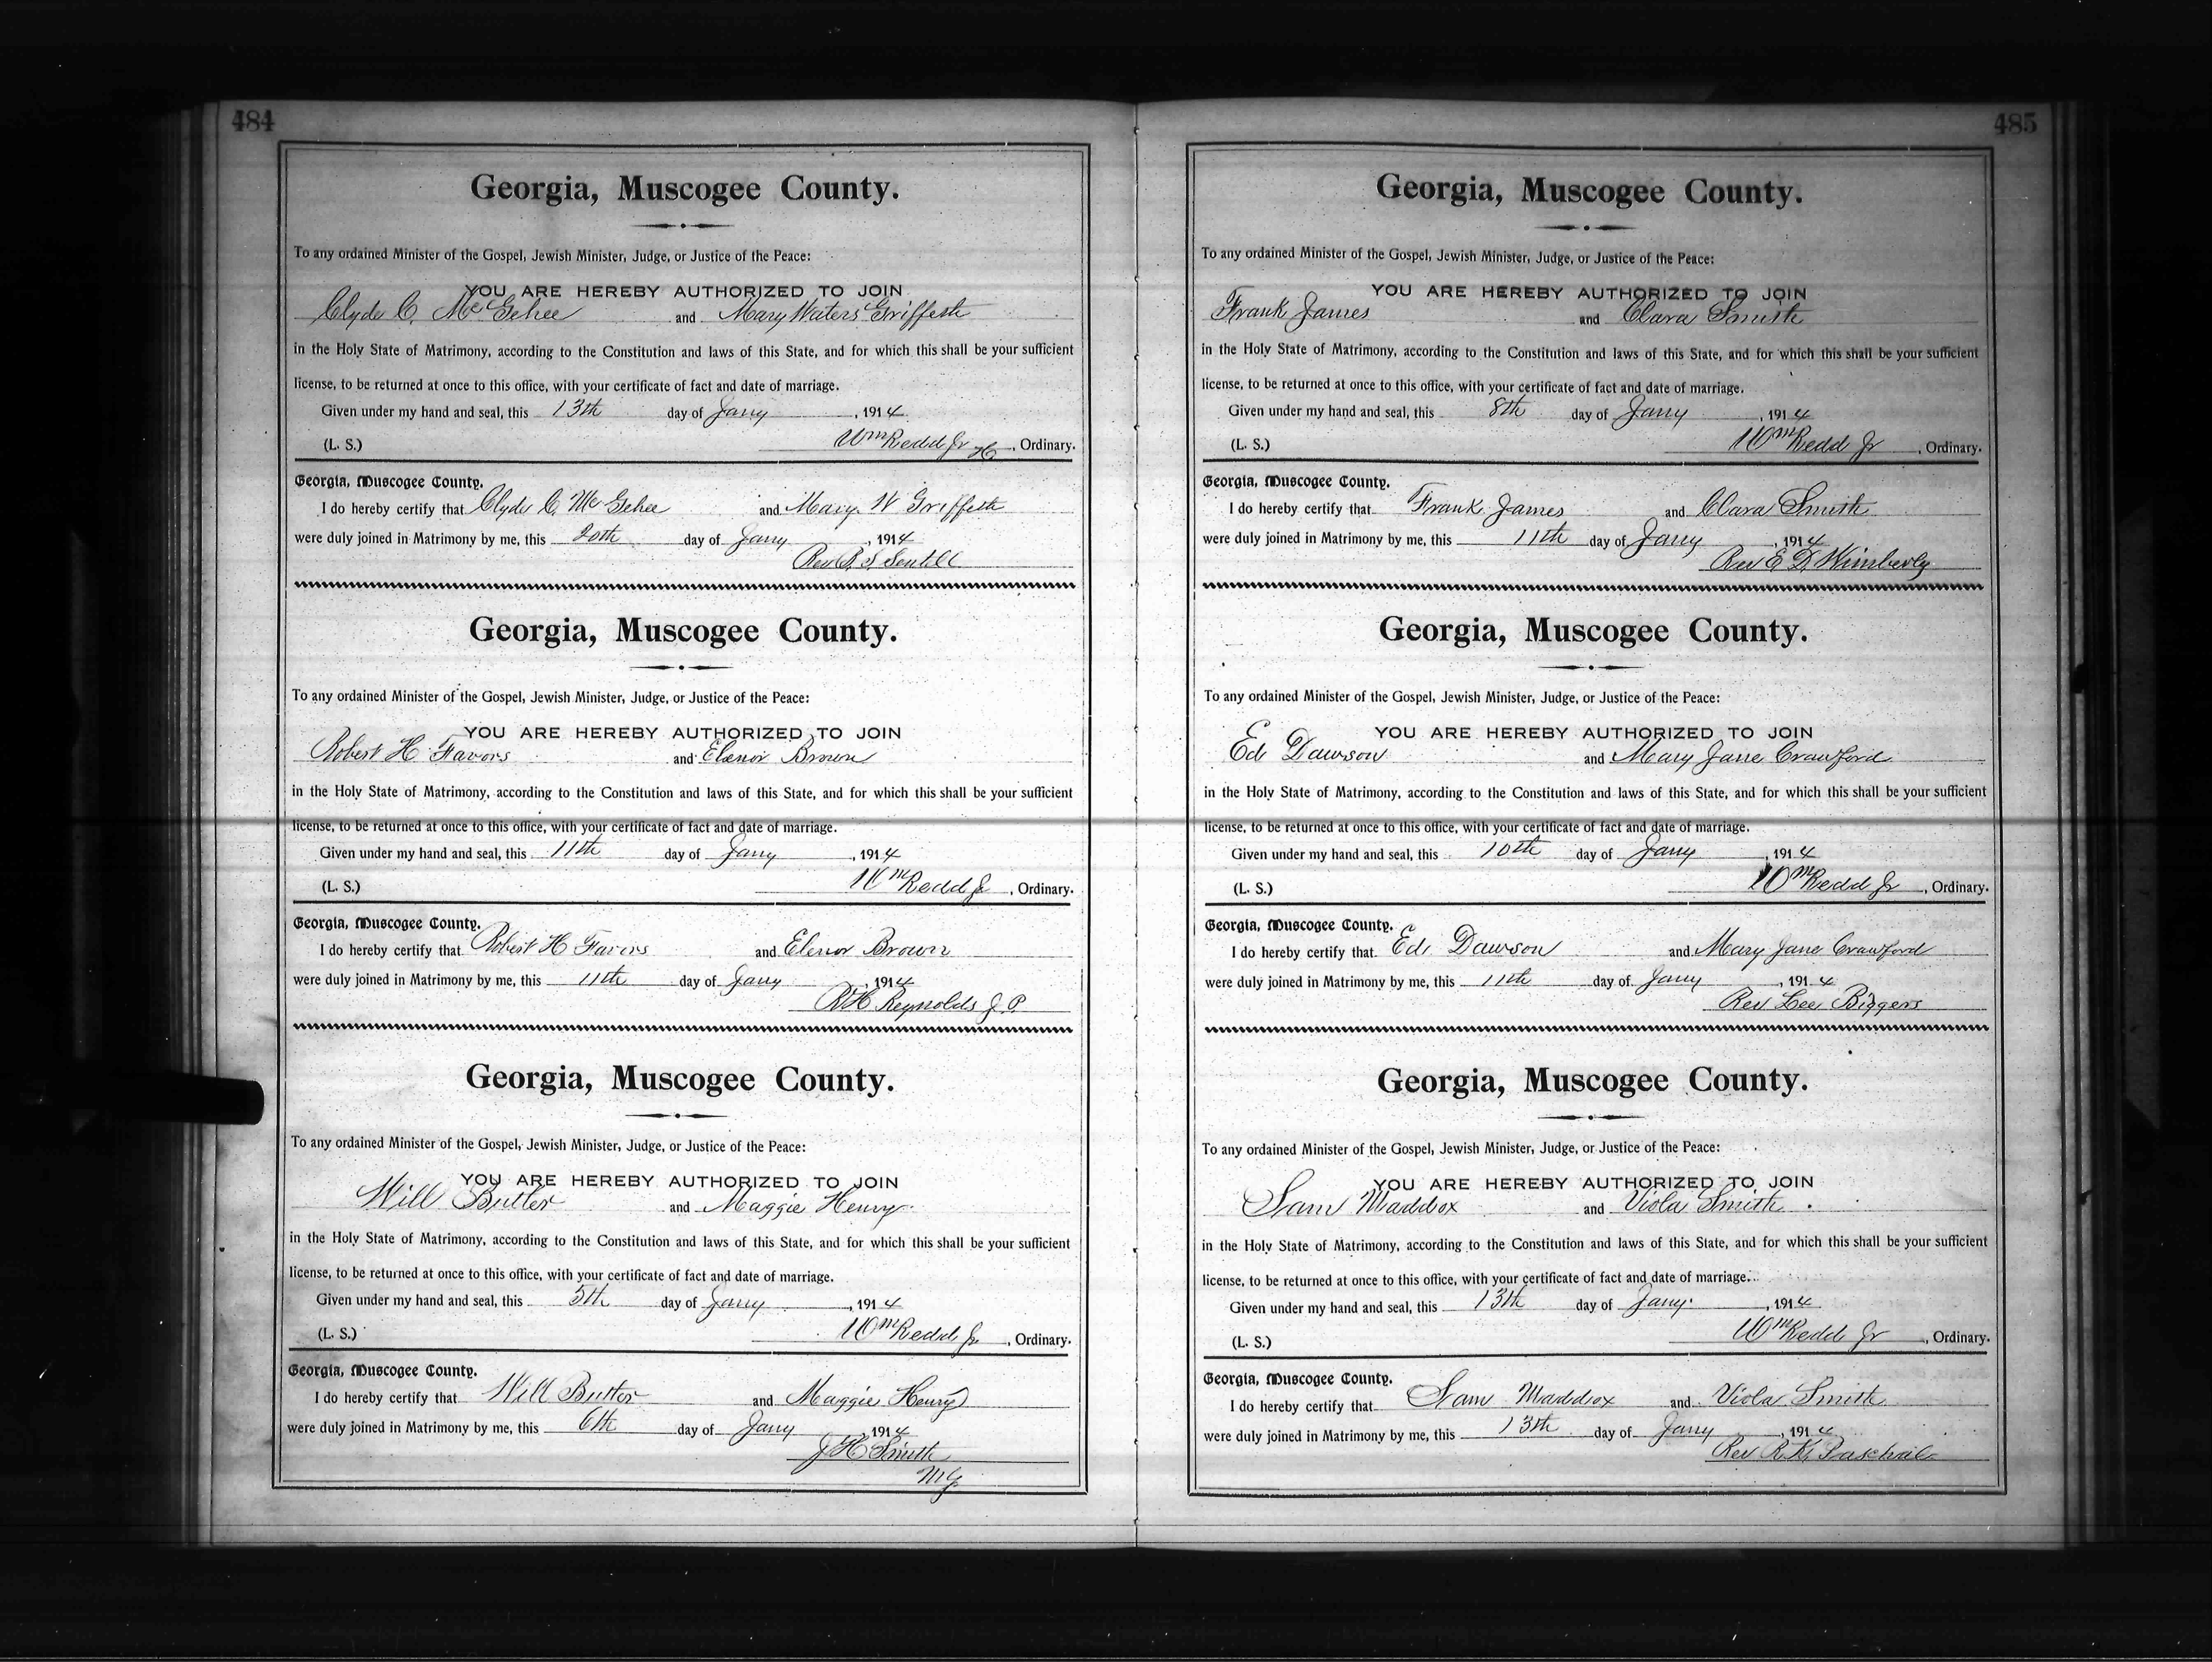 484
Georgia, Muscogee County.
To any ordained Minister of the Gospel, Jewish Minister, Judge, or Justice of the Peace:
YOU ARE HEREBY AUTHORIZED TO JOIN
Clyde C. McGehee and Mary Waters Griffeth
in the Holy State of Matrimony, according to the Constitution and laws of this State, and for which this shall be your sufficient
license, to be returned at once to this office, with your certificate of fact and date of marriage.
Given under my hand and seal, this 13th day of Jany, 1914
(L. S.) Wm Redd Jr, Ordinary.
Georgia, Muscogee County.
I do hereby certify that Clyde C. McGehee and Mary W Griffeth
were duly joined in Matrimony by me, this 20th day of Jany, 1914
Rev
Georgia, Muscogee County.
To any ordained Minister of the Gospel, Jewish Minister, Judge, or Justice of the Peace:
YOU ARE HEREBY AUTHORIZED TO JOIN
Robert H Favors and Elenor Brown
in the Holy State of Matrimony, according to the Constitution and laws of this State, and for which this shall be your sufficient
license, to be returned at once to this office, with your certificate of fact and date of marriage.
Given under my hand and seal, this 11th day of Jany, 1914
(L. S.) Wm Redd Jr, Ordinary.
Georgia, Muscogee County.
I do hereby certify that Robert H Favors and Elenor Brown
were duly joined in Matrimony by me, this 11th day of Jany, 1914
R H Reynolds J. P.
Georgia, Muscogee County.
To any ordained Minister of the Gospel, Jewish Minister, Judge, or Justice of the Peace:
YOU ARE HEREBY AUTHORIZED TO JOIN
Will Butler and Maggie Henry
in the Holy State of Matrimony, according to the Constitution and laws of this State, and for which this shall be your sufficient
license, to be returned at once to this office, with your certificate of fact and date of marriage.
Given under my hand and seal, this 5th day of Jany, 1914
(L. S.) Wm Redd Jr, Ordinary.
Georgia, Muscogee County.
I do hereby certify that Will Butler and Maggie Henry
were duly joined in Matrimony by me, this 6th day of Jany 1914
J H Smith
MG
485
Georgia, Muscogee County.
To any ordained Minister of the Gospel, Jewish Minister, Judge, or Justice of the Peace:
YOU ARE HEREBY AUTHORIZED TO JOIN
Frank James and Clara Smith
in the Holy State of Matrimony, according to the Constitution and laws of this State, and for which this shall be your sufficient
license, to be returned at once to this office, with your certificate of fact and date of marriage.
Given under my hand and seal, this 8th day of Jany, 1914
(L. S.) Wm Redd Jr, Ordinary.
Georgia, Muscogee County.
I do hereby certify that Frank James and Clara Smith
were duly joined in Matrimony by me, this 11th day of Jany, 1914
Rev E D Wimberly
Georgia, Muscogee County.
To any ordained Minister of the Gospel, Jewish Minister, Judge, or Justice of the Peace:
YOU ARE HEREBY AUTHORIZED TO JOIN
Ed Dawson and Mary Jane Crawford
in the Holy State of Matrimony, according to the Constitution and laws of this State, and for which this shall be your sufficient
license, to be returned at once to this office, with your certificate of fact and date of marriage.
Given under my hand and seal, this 10th day of Jany, 1914
(L. S.) Wm Redd Jr, Ordinary.
Georgia, Muscogee County.
I do hereby certify that Ed Dawson and Mary Jane Crawford
were duly joined in Matrimony by me, this 11th day of Jany, 1914
Rev Lee Biggers
Georgia, Muscogee County.
To any ordained Minister of the Gospel, Jewish Minister, Judge, or Justice of the Peace:
YOU ARE HEREBY AUTHORIZED TO JOIN
Sam Maddox and Viola Smith
in the Holy State of Matrimony, according to the Constitution and laws of this State, and for which this shall be your sufficient
license, to be returned at once to this office, with your certificate of fact and date of marriage.
Given under my hand and seal, this 13th day of Jany, 1914
(L. S.) Wm Redd Jr, Ordinary.
Georgia, Muscogee County.
I do hereby certify that Sam Maddox and Viola Smith
were duly joined in Matrimony by me, this 13th day of Jany, 1914
Rev R. K. Paschal